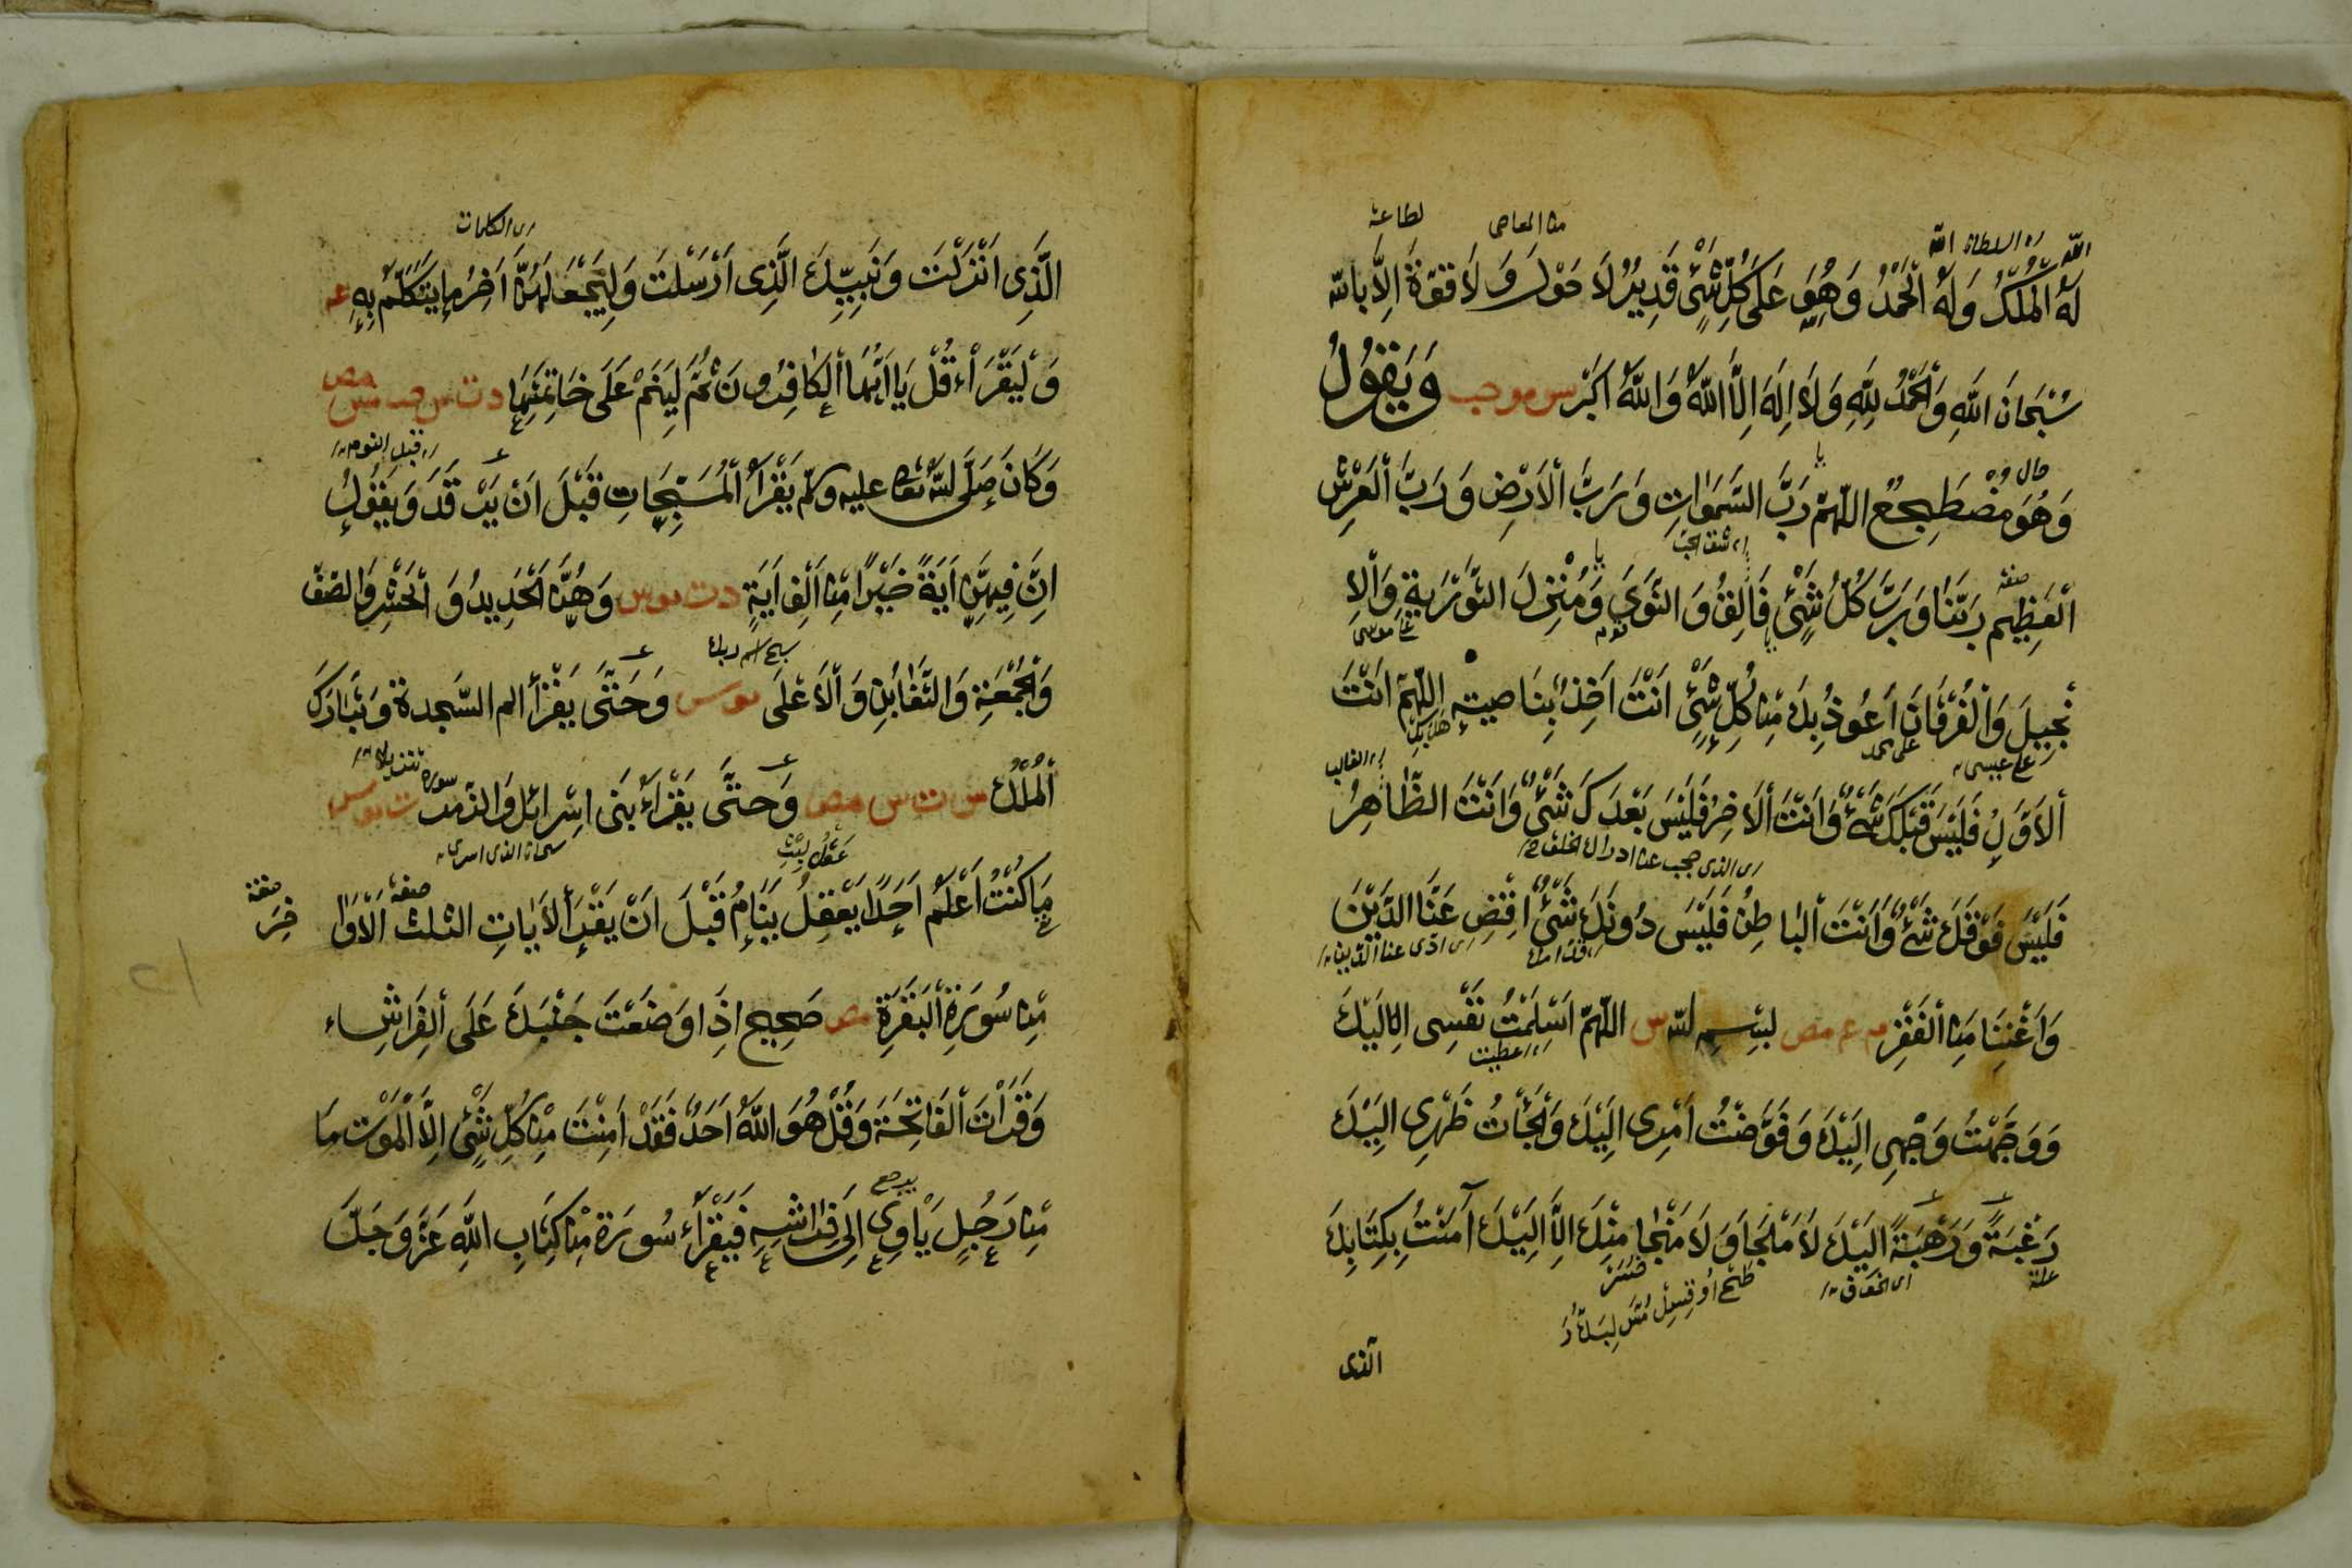 لَهُ الْمُلْكُ وَلَهُ الْحَمْدُ وَهُوَ عَلَى كُلِّ شَيْءٍ قَدِيرٌ لَا حَوْلَ وَلَا قُوَّةَ اِلَّا بِاللّٰه
سُبْحَانَ اللّٰهِ وَالْحَمْدُ لِلّٰهِ وَلَا اِلٰهَ اِلَّا اللّٰهُ وَاللّٰهُ اَكْبَرُ س مو حب وَيَقُولُ
وَهُوَ مُضْطَجِعٌ اللّٰهُمَّ رَبَّ السَّمٰوَاتِ وَرَبَّ الْاَرْضِ وَرَبَّ الْعَرْشِ
الْعَظِيمِ رَبَّنَا وَرَبَّ كُلِّ شَيْءٍ فَالِقَ النَّوَى وَمُنْزِلَ التَّوْرٰيةِ وَالْاِ
نْجِيلِ وَالْفُرْقَانِ اَعُوذُ بِكَ مِنْ كُلِّ شَيْءٍ اَنْتَ اٰخِذٌ بِنَاصِيَتِهِ اللّٰهُمَّ اَنْتَ
الْاَوَّلُ فَلَيْسَ قَبْلَكَ شَيْءٌ وَاَنْتَ الْاٰخِرُ فَلَيْسَ بَعْدَكَ شَيْءٌ وَاَنْتَ الظَّاهِرُ
فَلَيْسَ فَوْقَكَ شَيْءٌ وَاَنْتَ الْبَاطِنُ فَلَيْسَ دُونَكَ شَيْءٌ اِقْضِ عَنَّا الدَّيْنَ
وَاَغْنِنَا مِنَ الْفَقْرِ م ع مص بِسْمِ اللّٰه س اللّٰهُمَّ اَسْلَمْتُ نَفْسِى اِلَيْكَ
وَوَجَّهْتُ وَجْهِى اِلَيْكَ وَفَوَّضْتُ اَمْرِى اِلَيْكَ وَالْجَأْتُ ظَهْرِى اِلَيْكَ
رَغْبَةً وَرَهْبَةً اِلَيْكَ لَا مَلْجَا وَلَا مَنْجَا مِنْكَ اِلَّا اِلَيْكَ آمَنْتُ بِكِتَابِكَ
الذى
الَّذِى اَنْزَلْتَ وَنَبِيِّكَ الَّذِى اَرْسَلْتَ وَلْيَجْعَلْهُنَّ اٰخِرَ مَا يَتَكَلَّمُ بِهِ ع
وَلْيَقْرَأْ قُلْ يَا اَيُّهَا الْكَافِرُونَ ثُمَّ لْيَنَمْ عَلَى خَاتِمَتِهَا د ت س حب مس مص
وَكَانَ صَلَّى اللّٰهُ تعالى عليه وسلم يَقْرَأُ الْمُسَبِّحَاتِ قَبْلَ اَنْ يَرْقُدَ وَيَقُولُ
اِنَّ فِيهِنَّ اٰيَةً خَيْرًا مِنْ اَلْفِ اٰيَةٍ د ت مو س وَهُنَّ الْحَدِيدُ وَالْحَشْرُ وَالصَّفّ
وَالْجُمُعَةِ وَالتَّغَابُنِ وَالْاَعْلَى مو س وَحَتَّى يَقْرَأَ الم السَّجدة وَتَبَارَكَ
الْمُلْكُ س ت س مص وَحَتَّى يَقْرَأَ بَنِى اِسْرَائِل وَالزُّمَرَ ت مو س
مَا كُنْتُ اَعْلَمُ اَحَدًا يَعْقِلُ يَنَامُ قَبْلَ اَنْ يَقْرَأَ الْاٰيَاتِ الثلث الْاَوَا خِرَ
مِنْ سُورَةِ الْبَقَرَةِ مص صَحِيح اِذَا وَضَعْتَ جَنْبَكَ عَلَى الْفِرَاشِ
وَقَرَأْتَ الْفَاتِحَةَ وَقُلْ هُوَ اللّٰهُ اَحَدٌ فَقَدْ اَمِنْتَ مِنْ كُلِّ شَيْءٍ اِلَّا الْمَوْت مَا
مِنْ رَجُلٍ يَأْوِى اِلَى فِرَاشِهِ فَيَقْرَأُ سُورَة مِنْ كِتَابِ اللّٰهِ عَزَّ وَجَلَّ